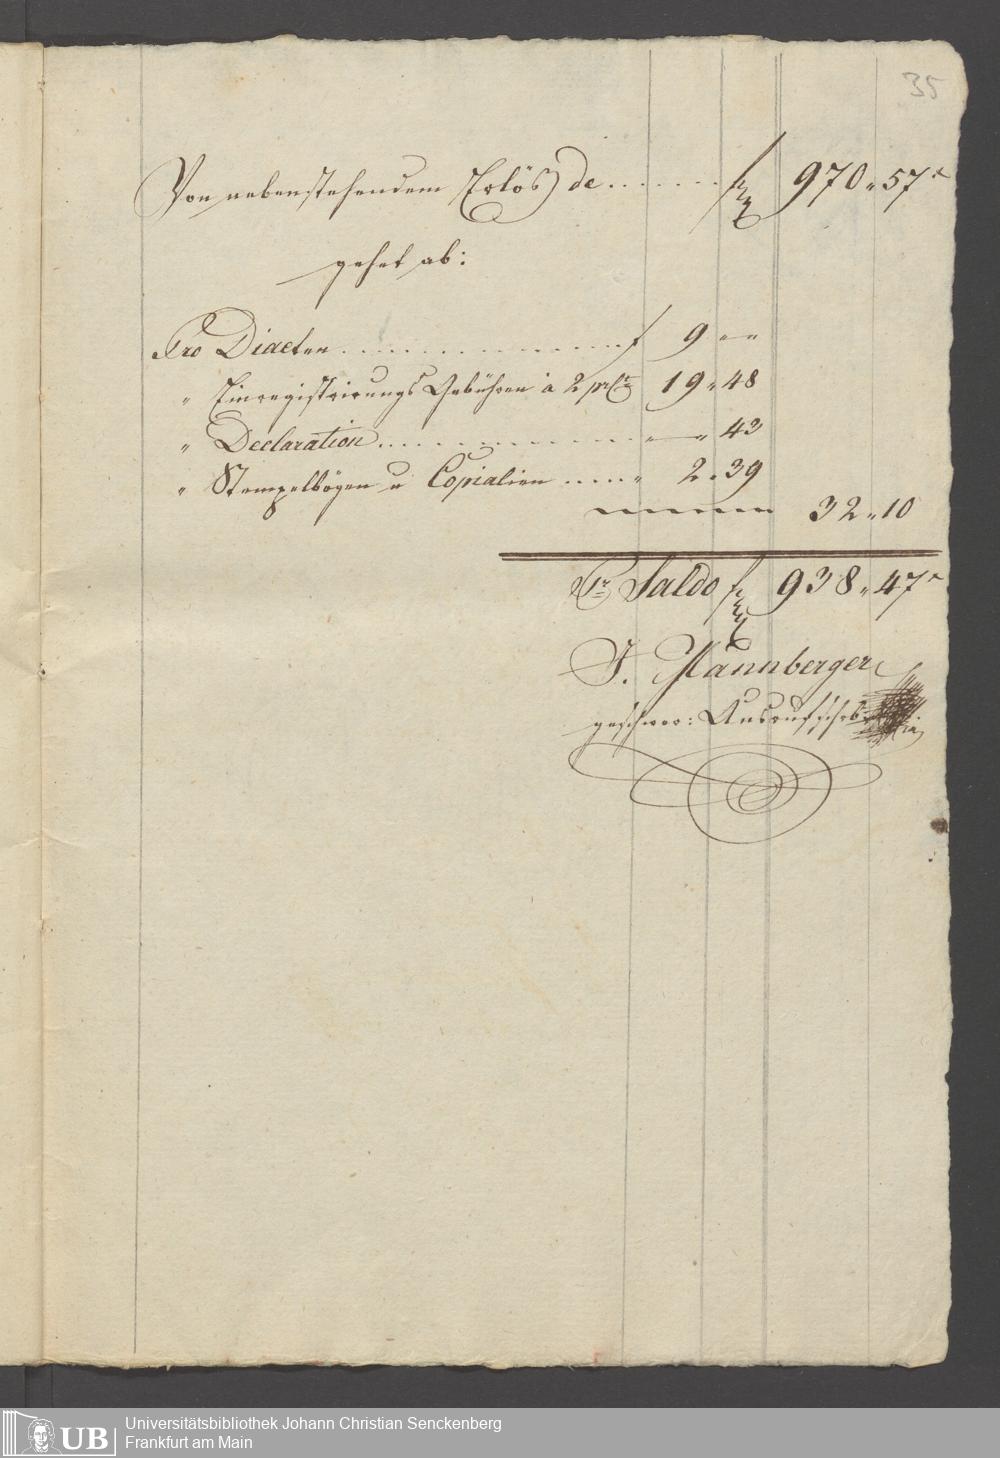 35
Von nebenstehendem Erlös de ....... f 970 „ 57 x
gehet ab:
Pro Diaeten ................ f 9 „ „
„ Einregistrirungs Gebühren à 2 prCt 19 „ 48
„ Declaration ............. „ — „ 43
„ Stempelbögen u Copialien ..... „ 2 „ 39
32 „ 10
Pr Saldo f 938 „ 47 x
J. Hannberger
geschwor: Ausrufschrbr
Universitätsbibliothek Johann Christian Senckenberg
Frankfurt am Main
UB